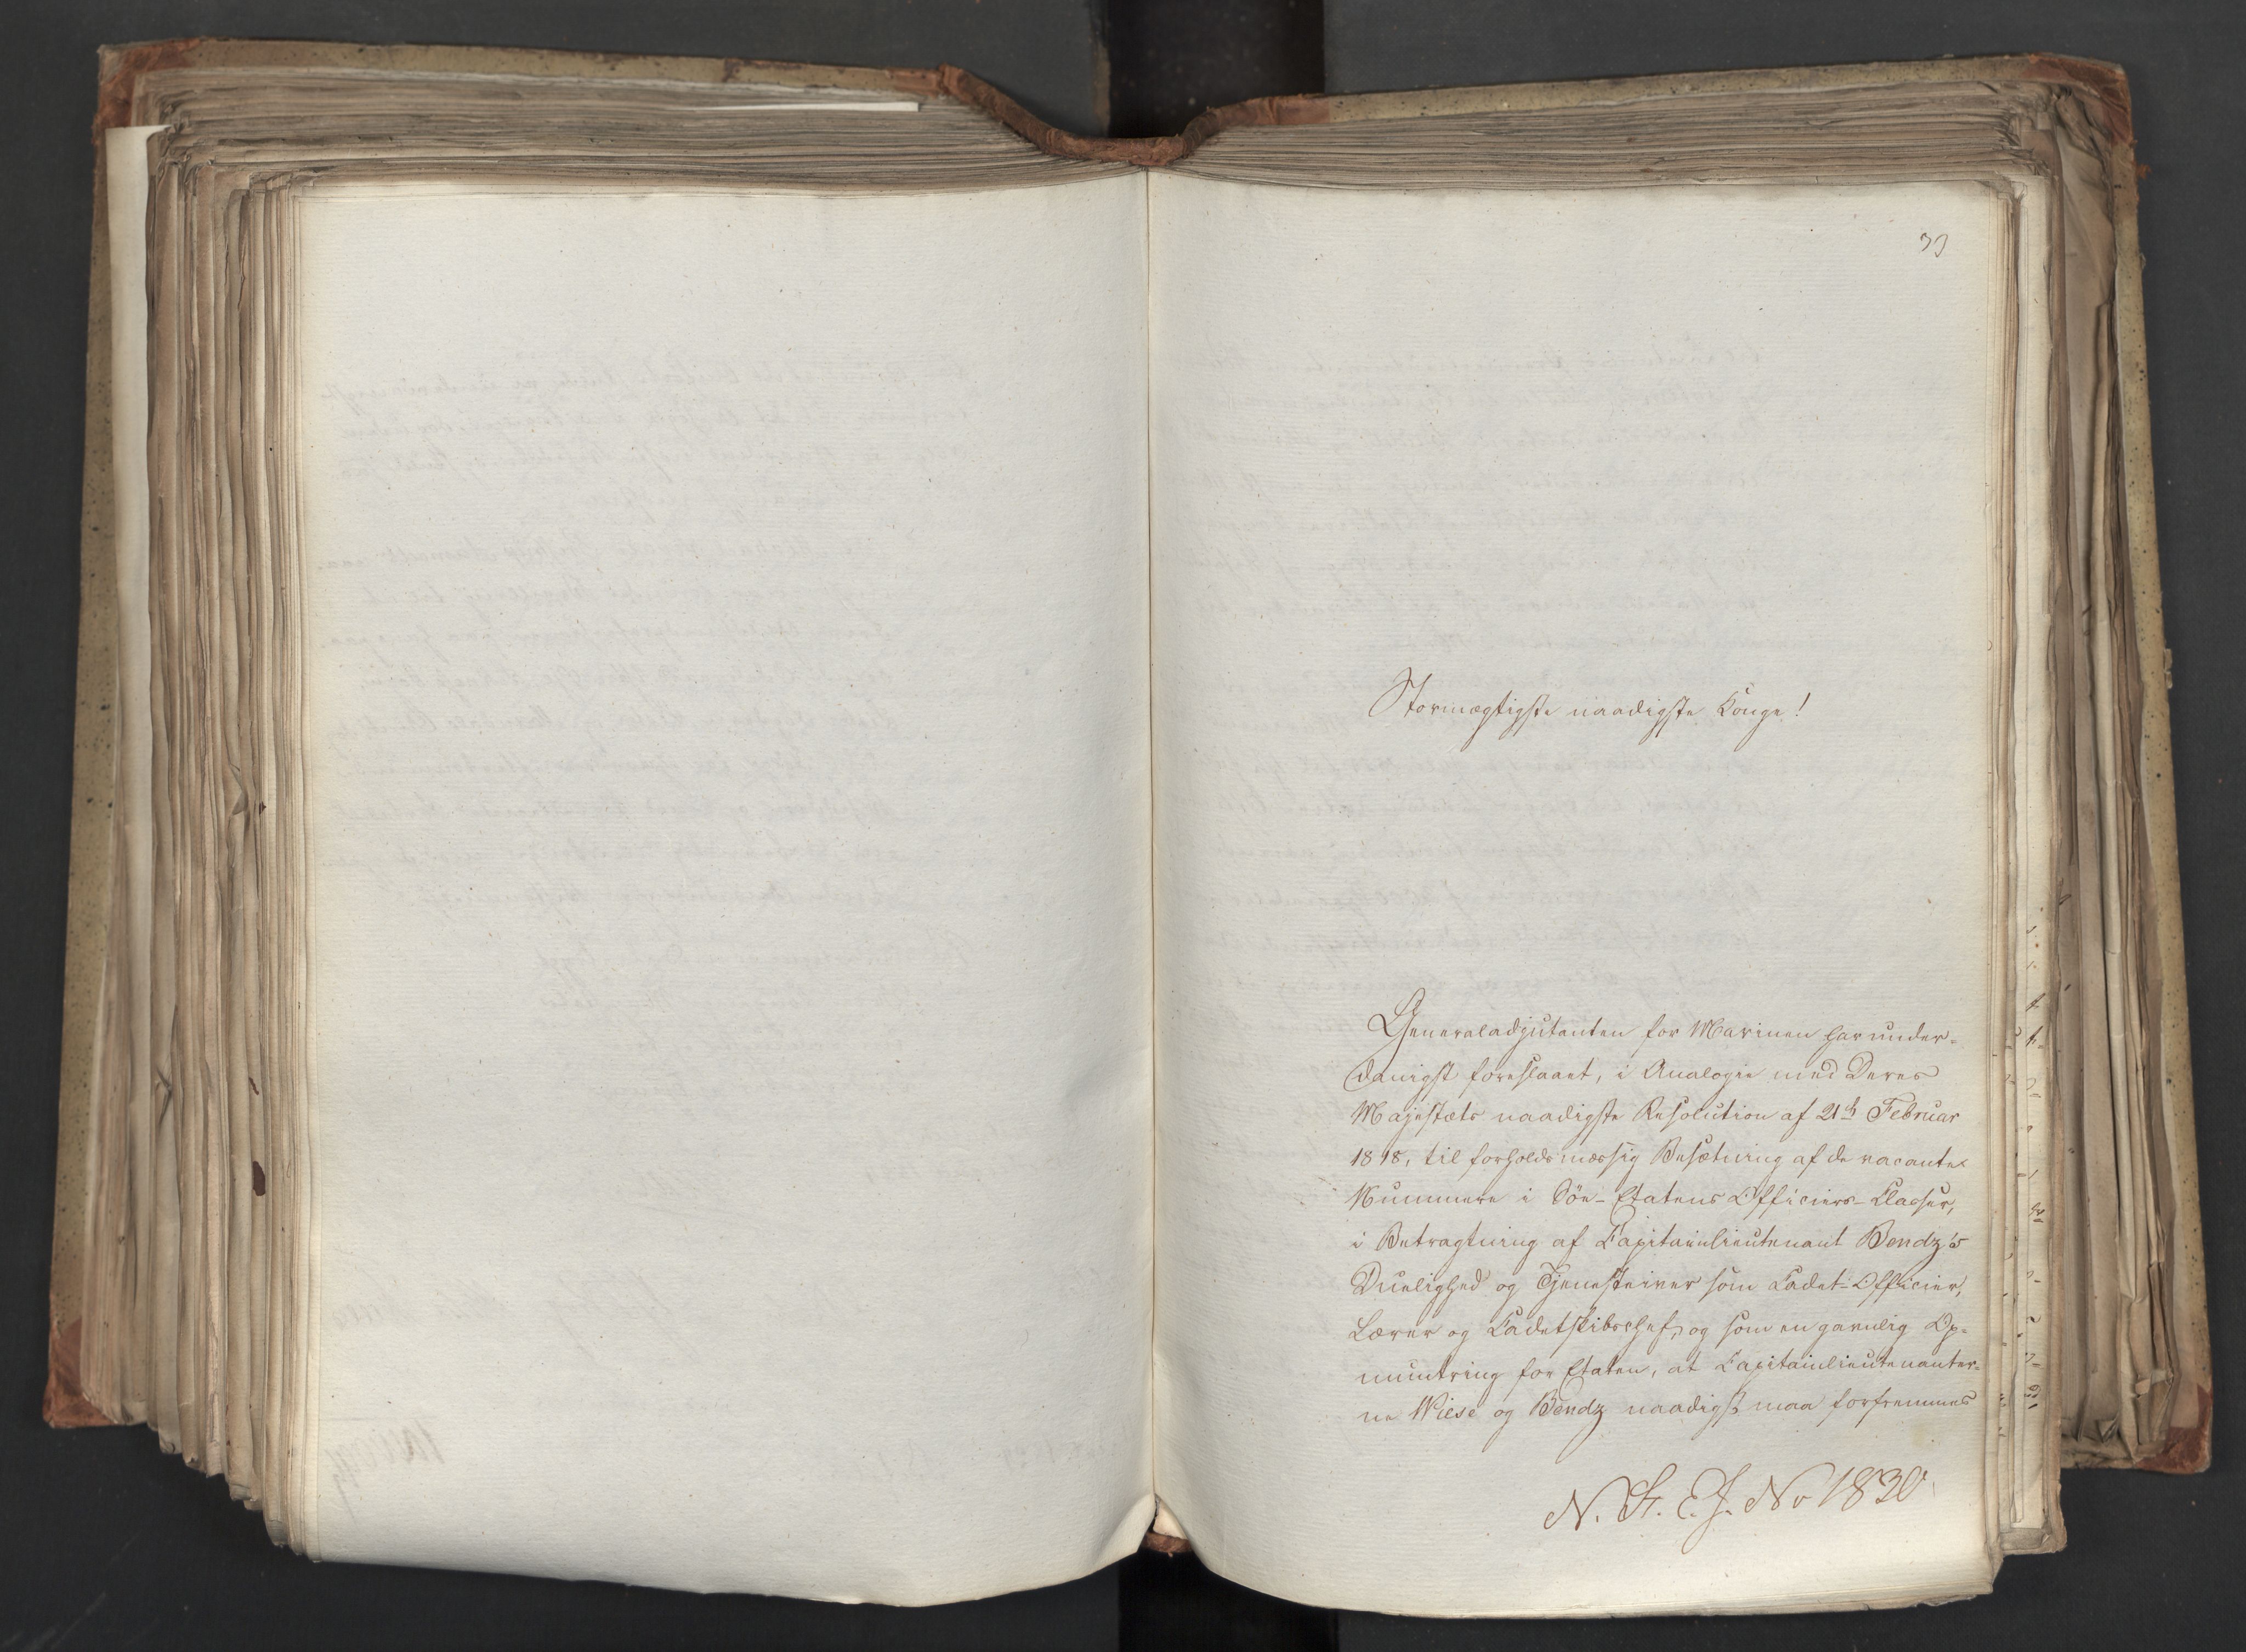 33
Stormægtigste naadigste Konge!
Generaladjutanten for Marinen har under-
danigst foreslaaet, i Analogie med Deres
Majestæts naadigste Resolution af 21de Februar
1818, til forholdsmæssig Besætning af de vacante
Nummere i Söe-Etatens Officiers-Classer,
i Betragtning af Capitainlieutenant Bendz's
Duelighed og Tjenesteiver som Cadet-Officier,
Lærer og Cadetskibschef, og som en gavnlig Op-
muntring for Etaten, at Capitainlieutenanter-
ne Wiese og Bendz naadigst maa forfremmes
N. F. C. J. No 1830